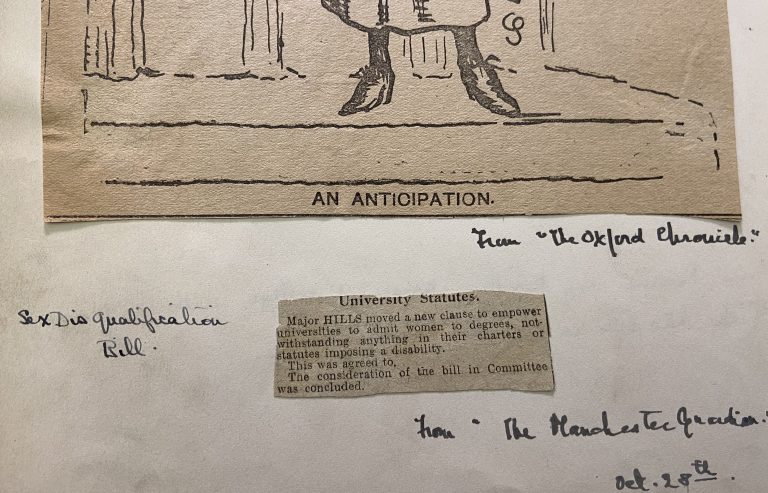 AN ANTICIPATION.
From "The Oxford Chronicle."
Sex Disqualification
Bill.
University Statutes.
Major HILLS moved a new clause to empower
universities to admit women to degrees, not-
withstanding anything in their charters or
statutes imposing a disability.
This was agreed to.
The consideration of the bill in Committee
was concluded.
From "The Manchester Guardian."
Oct. 28th.